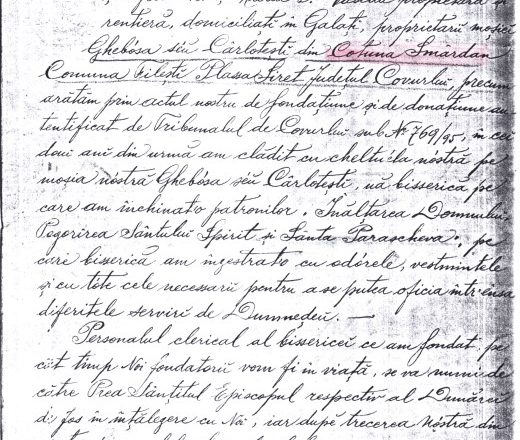 rentieră, domiciliați în Galați, proprietarii moșiei
Ghebósa séu Cârlotești din Cotuna Smârdan
Comuna Filești Plassa Siret Județul Covurlui, precum
arătăm prin actul nostru de fondațiune și de donațiune au
tentificat de Tribunalul de Covurlui sub Nº 769/95, în cei
doui ani din urmă am clădit cu cheltuéla nóstră pe
moșia nóstră Ghebósa séu Cârlotești, uă bisserică pe
care am închinato patronilor. Înălțarea Domnului,
Pogorîrea Sântului Spirit și Santa Parascheva, pe
care biserică am înzestrato cu odórele, vestmintele
și cu tóte cele necessarii pentru a se putea oficia într'ensa
diferitele servicii de Dumnedeu. —
Personalul clerical al bissericei ce am fondat pe
cât timp Noi fondatorii vom fi în viață, se va numi de
către Prea Sântitul Episcopul respectiv al Dunărei
de Jos în înțălegere cu Noi, iar după trecerea Nóstră din